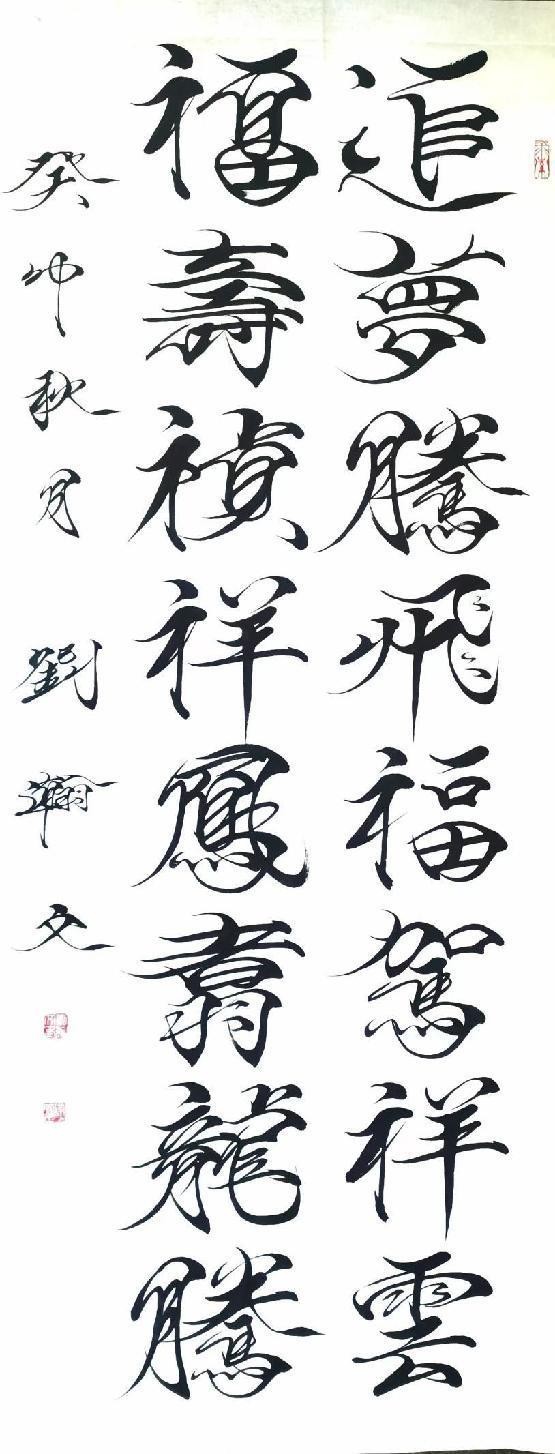 追夢騰飛福駕祥雲
福壽禎祥鳳翥龍騰
癸卯秋月 劉瀚文